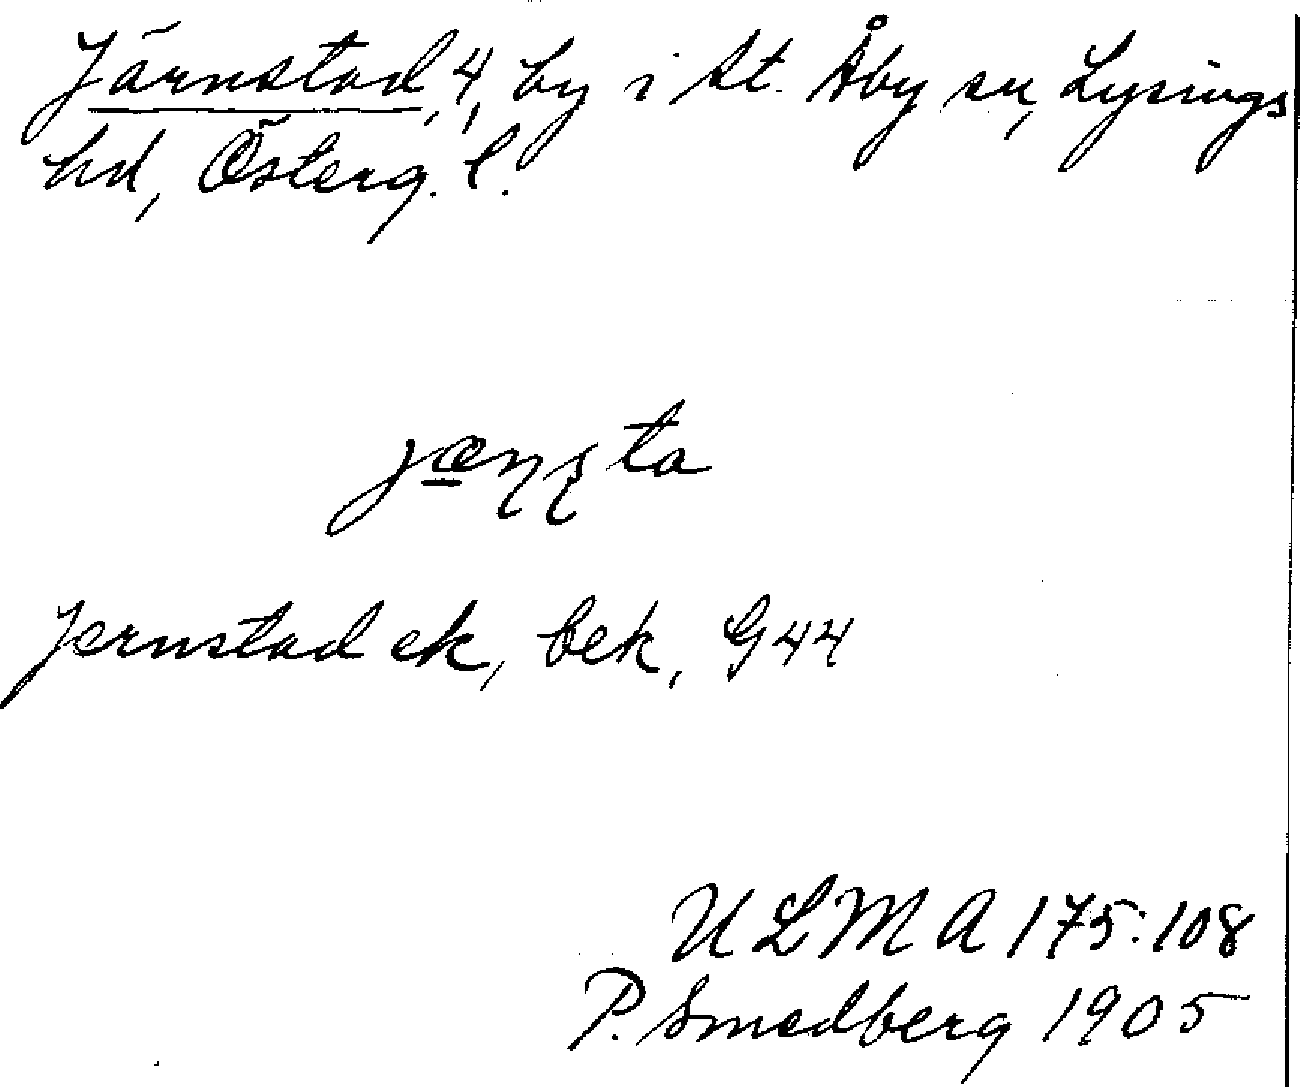 Järnstad, 4, by i St. Åby sn, Lysings
hd, Österg. l.
jæɳʂta
Jernstad ek, bek, G44
ULMA 175:108
P. Smedberg 1905